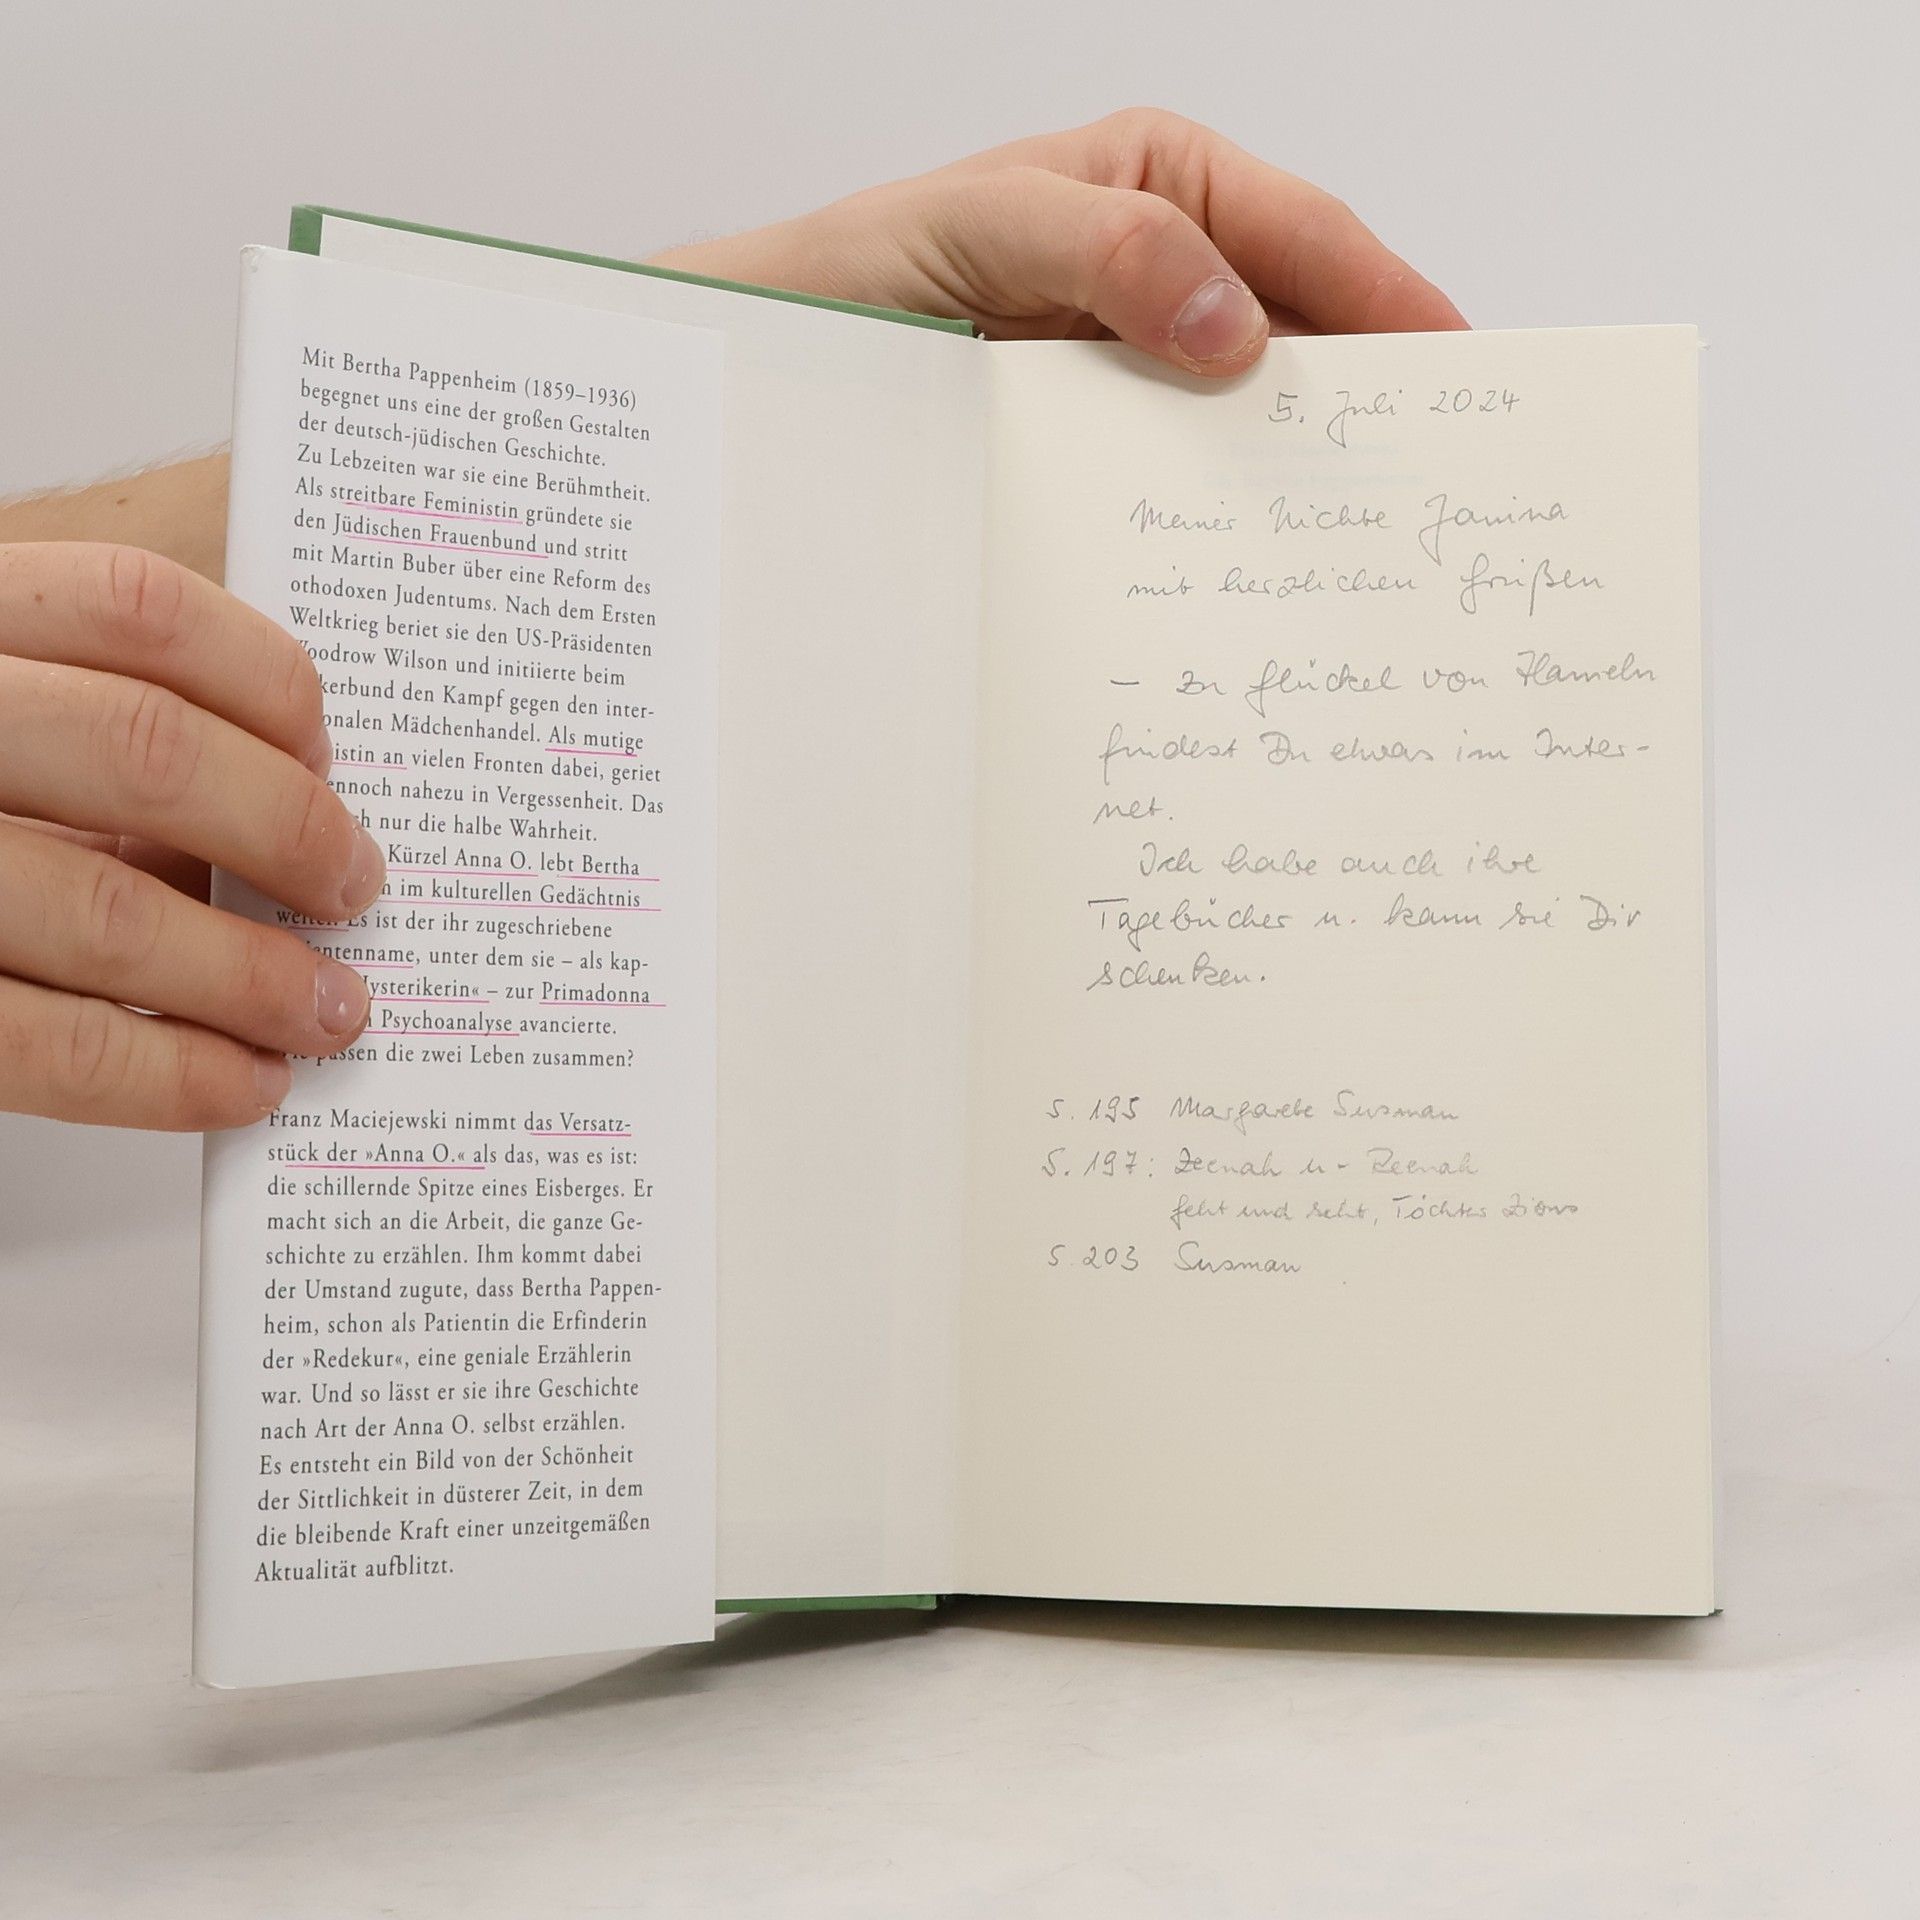 Mit Bertha Pappenheim (1859–1936)
begegnet uns eine der großen Gestalten
der deutsch-jüdischen Geschichte.
Zu Lebzeiten war sie eine Berühmtheit.
Als streitbare Feministin gründete sie
den Jüdischen Frauenbund und stritt
mit Martin Buber über eine Reform des
othodoxen Judentums. Nach dem Ersten
Weltkrieg beriet sie den US-Präsidenten
Woodrow Wilson und initiierte beim
kerbund den Kampf gegen den inter-
onalen Mädchenhandel. Als mutige
istin an vielen Fronten dabei, geriet
ennoch nahezu in Vergessenheit. Das
h nur die halbe Wahrheit.
Kürzel Anna O. lebt Bertha
im kulturellen Gedächtnis
weiter. Es ist der ihr zugeschriebene
ntenname, unter dem sie – als kap-
ysterikerin« – zur Primadonna
Psychoanalyse avancierte.
passen die zwei Leben zusammen?
Franz Maciejewski nimmt das Versatz-
stück der »Anna O.« als das, was es ist:
die schillernde Spitze eines Eisberges. Er
macht sich an die Arbeit, die ganze Ge-
schichte zu erzählen. Ihm kommt dabei
der Umstand zugute, dass Bertha Pappen-
heim, schon als Patientin die Erfinderin
der »Redekur«, eine geniale Erzählerin
war. Und so lässt er sie ihre Geschichte
nach Art der Anna O. selbst erzählen.
Es entsteht ein Bild von der Schönheit
der Sittlichkeit in düsterer Zeit, in dem
die bleibende Kraft einer unzeitgemäßen
Aktualität aufblitzt.
5. Juli 2024
Meiner Nichte Janina
mit herzlichen Grüßen
– Zu Glückel von Hameln
findest Du etwas im Inter-
net.
Ich habe auch ihre
Tagebücher u. kann sie Dir
schenken.
S. 195 Margarete Susman
S. 197: Zeenah u - Reenah
Geht und seht, Töchter Zions
S. 203 Susman